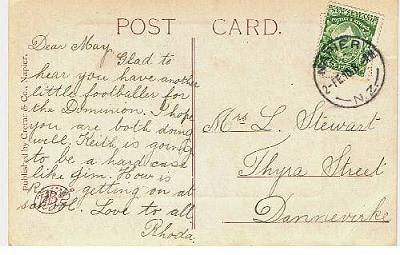 POST CARD.
Dear May,
Glad to
hear you have another
little footballer for
the Dominion. I hope
you are both doing
well, Keith is going
to be a hard case
like Jim. How is
getting on at
school. Love to all
Rhoda.
Mrs L. Stewart
Thyra Street
Dannevirke
Published by & Co., Napier.
N.Z.